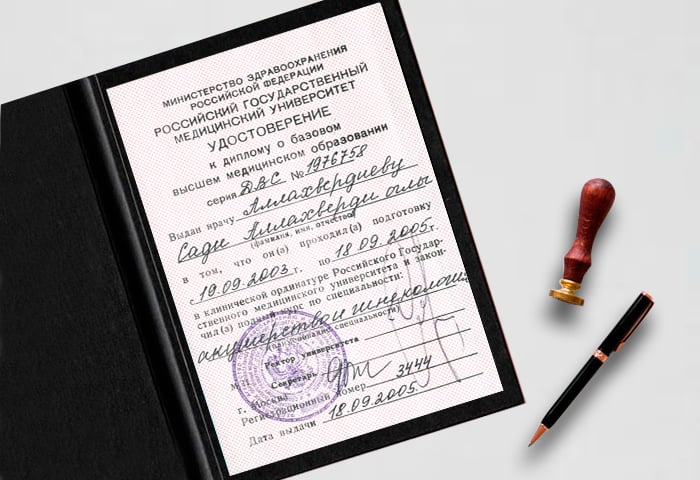 МИНИСТЕРСТВО ЗДРАВООХРАНЕНИЯ
РОССИЙСКОЙ ФЕДЕРАЦИИ
РОССИЙСКИЙ ГОСУДАРСТВЕННЫЙ
МЕДИЦИНСКИЙ УНИВЕРСИТЕТ
УДОСТОВЕРЕНИЕ
к диплому о базовом
высшем медицинском образовании
серия ДВС № 1976758
Выдан врачу Аллахвердиеву
Сади Аллахверди оглы
(фамилия, имя, отчество)
в том, что он(а) проходил(а) подготовку
с 19.09.2003 г. по 18.09.2005г.
в клинической ординатуре Российского Государ-
ственного медицинского университета и закон-
чил(а) полный курс по специальности:
акушерство и гинекология
(наименование специальности)
Ректор университета
М.П.
Секретарь
г. Москва
Регистрационный номер 3444
Дата выдачи 18.09.2005.